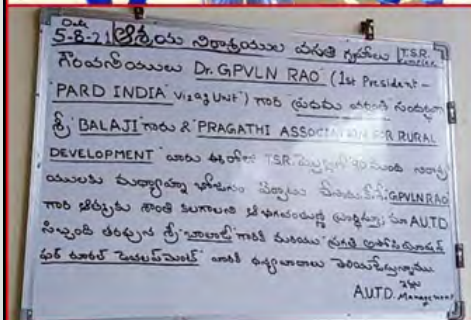 Date
5-8-21 ఆశ్రయ నిరాశ్రయుల వసతి గృహాలు T.S.R.
గౌరవనీయులు Dr. GPVLN RAO (1st President -
PARD INDIA Vizag Unit) గారి ప్రథమ వర్ధంతి సందర్భంగా
శ్రీ BALAJI గారు & PRAGATHI ASSOCIATION FOR RURAL
DEVELOPMENT వారు ఈ రోజు T.S.R. 90 మంది నిరాశ్ర
యులకు మధ్యాహ్న భోజనం ఏర్పాటు GPVLN RAO
గారి ఆత్మకు శాంతి కలగాలని ఆ భగవంతుణ్ణి ప్రార్థిస్తూ మా AUTD
సిబ్బంది తరఫున శ్రీ బాలాజీ గారికి మరియు ప్రగతి అసోసియేషన్
ఫర్ రూరల్ డెవలప్‌మెంట్ వారికి ధన్యవాదాలు తెలియజేస్తున్నాము
AUTD. Management